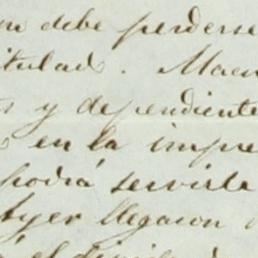 debe perderse
titulad. Maca
y dependiente
en la impre
podrá servirle
Ayer llegaron
el